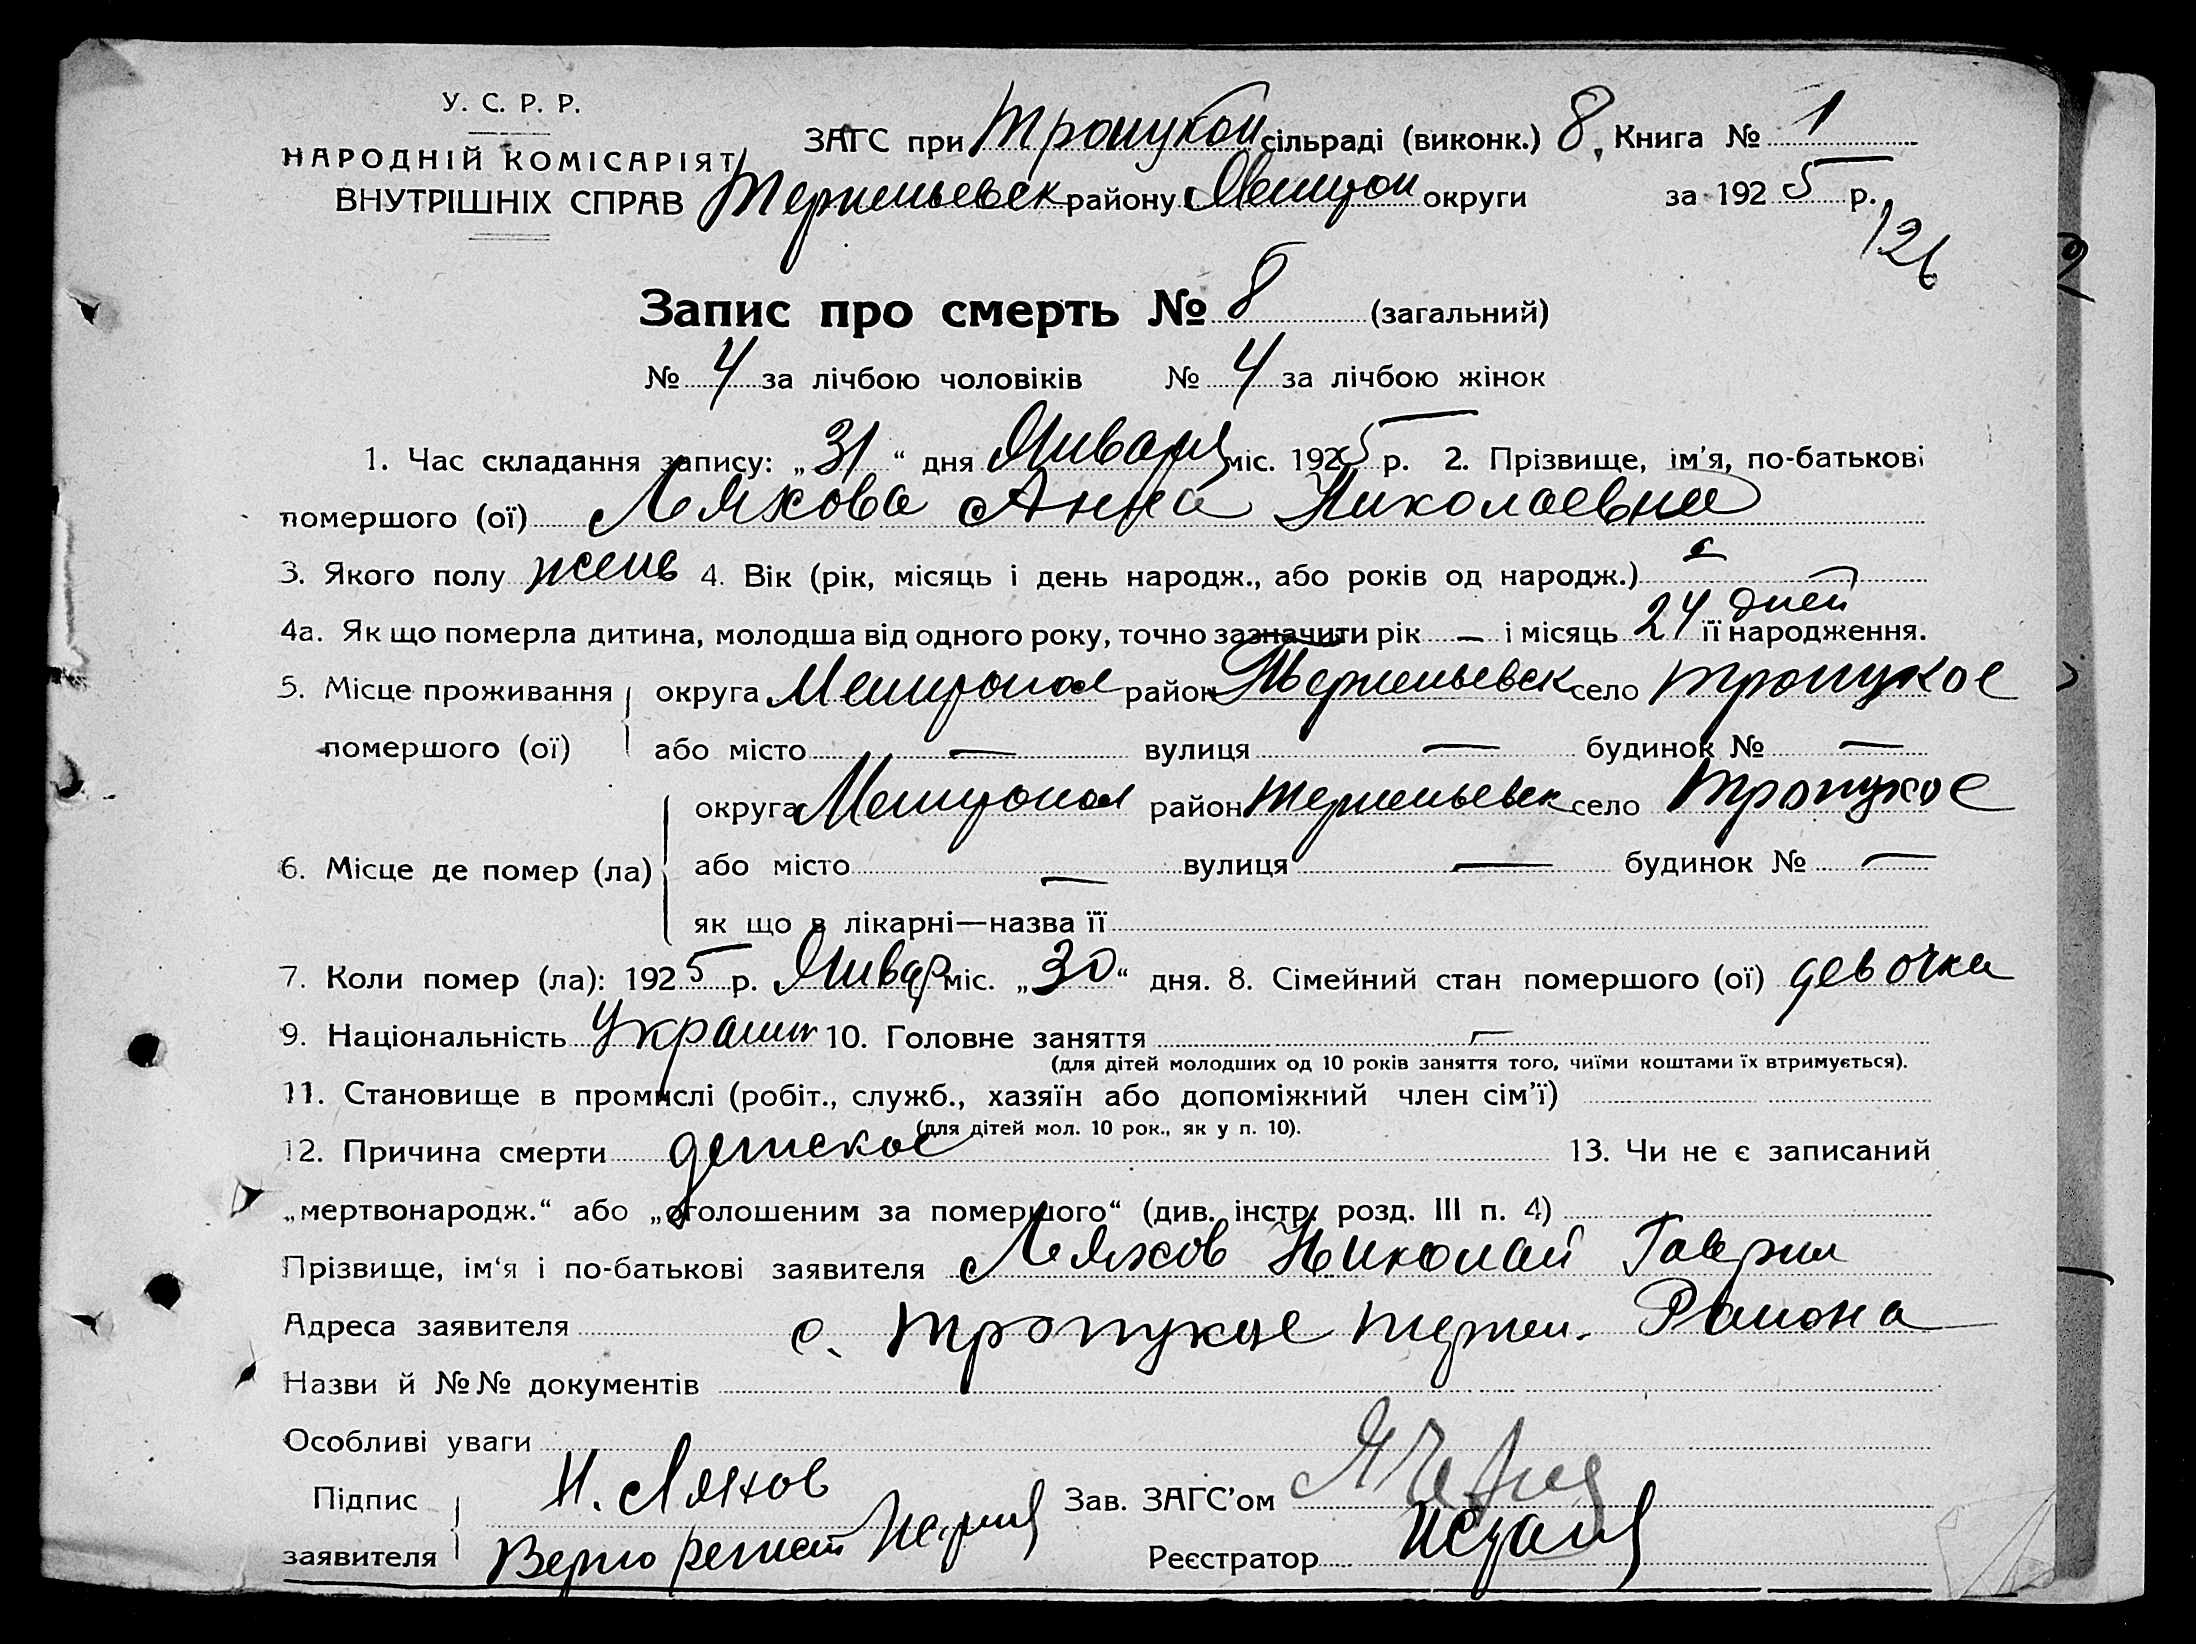 У. С. Р. Р.
НАРОДНІЙ КОМІСАРІЯТ
ВНУТРІШНІХ СПРАВ
ЗАГС при Троицкой сільраді (виконк.) 8, Книга № 1
Терпеньевск району Мелитоп округи за 1925 р.
126
Запис про смерть № 8 (загальний)
№ 4 за лічбою чоловіків № 4 за лічбою жінок
1. Час складання запису: „31“ дня Января міс. 1925 р. 2. Прізвище, ім'я, по-батькові
помершого (ої) Ляхова Анна Николаевна
3. Якого полу женс 4. Вік (рік, місяць і день народж., або років од народж.)
4а. Як що померла дитина, молодша від одного року, точно зазначити рік — і місяць 24 дней її народження.
5. Місце проживання округа Мелитопол район Терпеньевск село Троицкое
помершого (ої) або місто — вулиця — будинок № —
округа Мелитопол район Терпеньевск село Троицкое
6. Місце де помер (ла) або місто — вулиця — будинок № —
як що в лікарні—назва її
7. Коли помер (ла): 1925 р. Январ міс. „30“ дня. 8. Сімейний стан помершого (ої) девочка
9. Національність Украин 10. Головне заняття —
(для дітей молодших од 10 років заняття того, чиїми коштами їх втримується).
11. Становище в промислі (робіт., служб., хазяїн або допоміжний член сім'ї)
(для дітей мол. 10 рок., як у п. 10).
12. Причина смерти детское 13. Чи не є записаний
„мертвонародж.“ або „оголошеним за помершого“ (див. інстр. розд. III п. 4)
Прізвище, ім'я і по-батькові заявителя Ляхов Николай Гаврил
Адреса заявителя с. Троицкое Терпен. Района
Назви й №№ документів
Особливі уваги
Підпис Н. Ляхов Зав. ЗАГС'ом
заявителя Верно Реєстратор